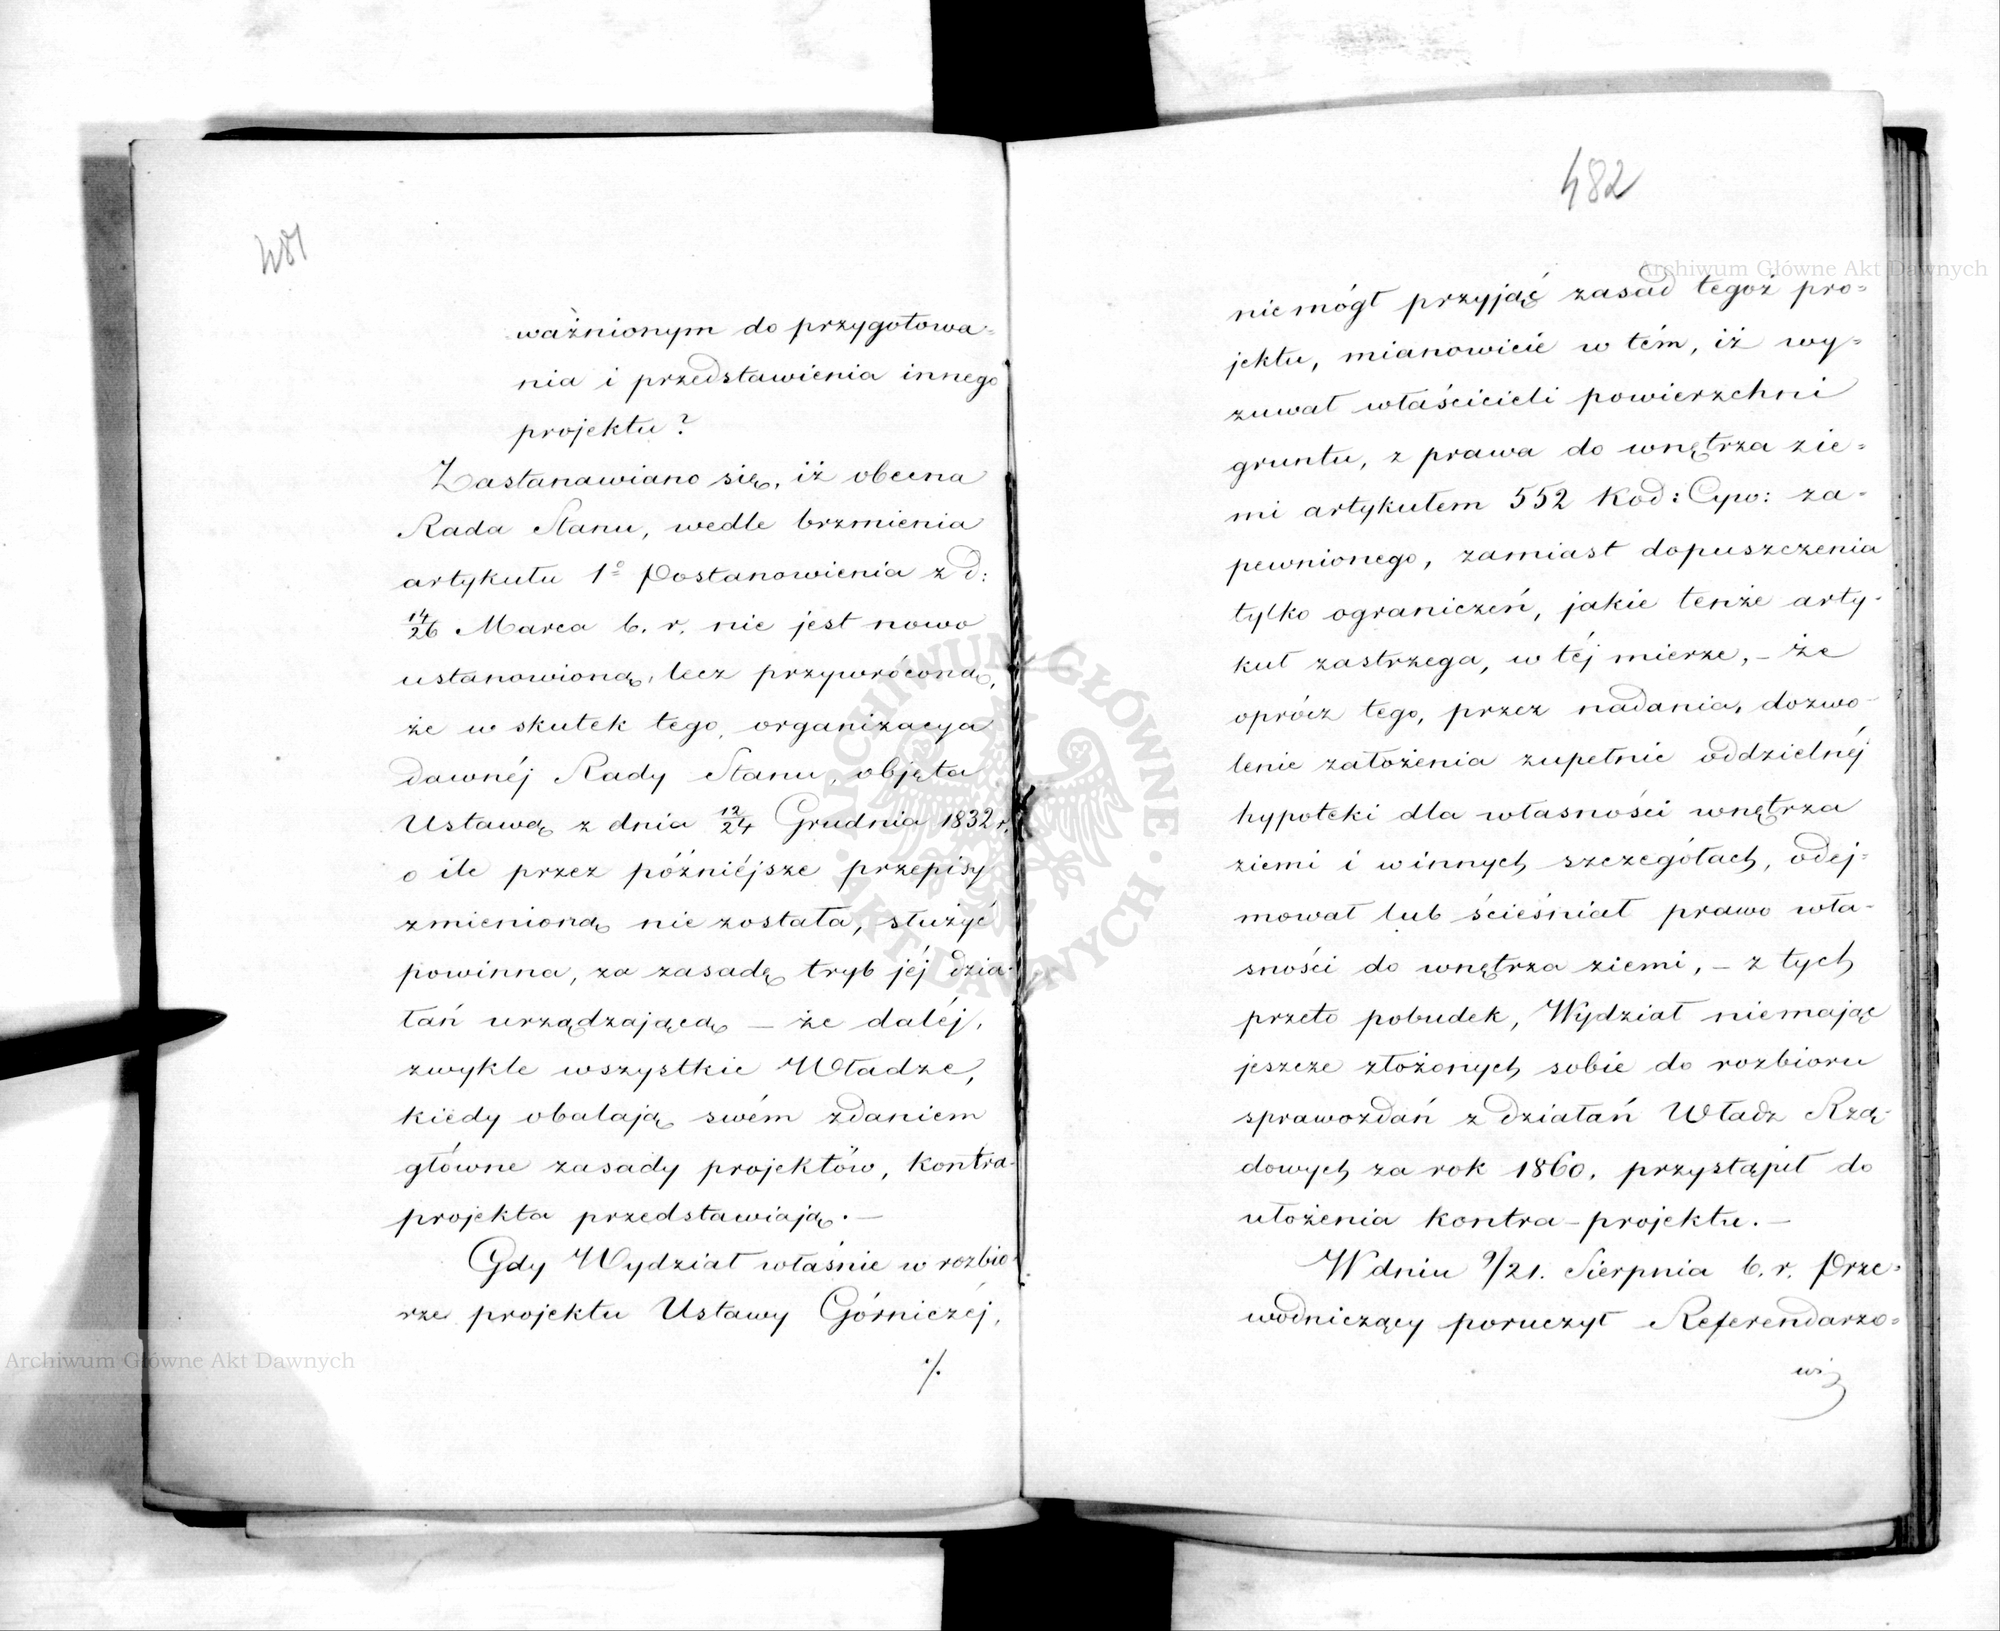 481
ważnionym do przygotowa=
nia i przedstawienia innego
projektu?
Zastanawiano się, iż obecna
Rada Stanu, wedle brzmienia
artykułu 1º Postanowienia z d:
14/26 Marca b. r. nie jest nowo
ustanowioną, lecz przywróconą,
że w skutek tego, organizacya
dawnéj Rady Stanu, objęta
Ustawą z dnia 12/24 Grudnia 1832 r.
o ile przez późniéjsze przepisy
zmienioną nie została, służyć
powinna, za zasadę tryb jéj dzia-
łań urządzającą — że daléj,
zwykle wszystkie Władze,
kiedy obalają swém zdaniem
główne zasady projektów, kontra-
projekta przedstawiają. —
Gdy Wydział właśnie w rozbio-
rze projektu Ustawy Górniczéj,
./.
482
nie mógł przyjąć zasad tegoż pro=
jektu, mianowicie w tém, iż wy=
zuwał właścicieli powierzchni
gruntu, z prawa do wnętrza zie=
mi artykułem 552 Kod: Cyw: za-
pewnionego, zamiast dopuszczenia
tylko ograniczeń, jakie tenże arty-
kuł zastrzega, w téj mierze, – że
oprócz tego, przez nadania, dozwo-
lenie założenia zupełnie oddzielnéj
hypoteki dla własności wnętrza
ziemi i w innych szczegółach, odej-
mował lub ścieśniał prawo wła-
sności do wnętrza ziemi, – z tych
przeto pobudek, Wydział niemając
jeszcze złożonych sobie do rozbioru
sprawozdań z działań Władz Rzą-
dowych za rok 1860, przystąpił do
ułożenia kontra-projektu. —
W dniu 9/21. Sierpnia b. r. Prze-
wodniczący poruczył Referendarzo=
wi
Archiwum Główne Akt Dawnych
Archiwum Główne Akt Dawnych
ARCHIWUM GŁÓWNE · AKT DAWNYCH ·